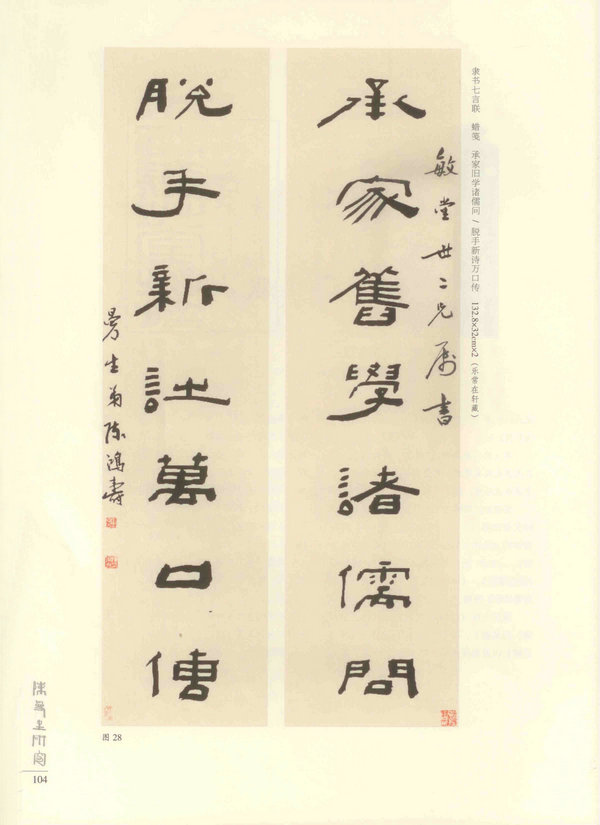 隶书七言联　蜡笺　承家旧学诸儒问 / 脱手新诗万口传　132.8×32cm×2（乐常在轩藏）
敏堂世二兄属书
承家舊學諸儒問
脫手新詩萬口傳
曼生弟陈鴻壽
图 28
104